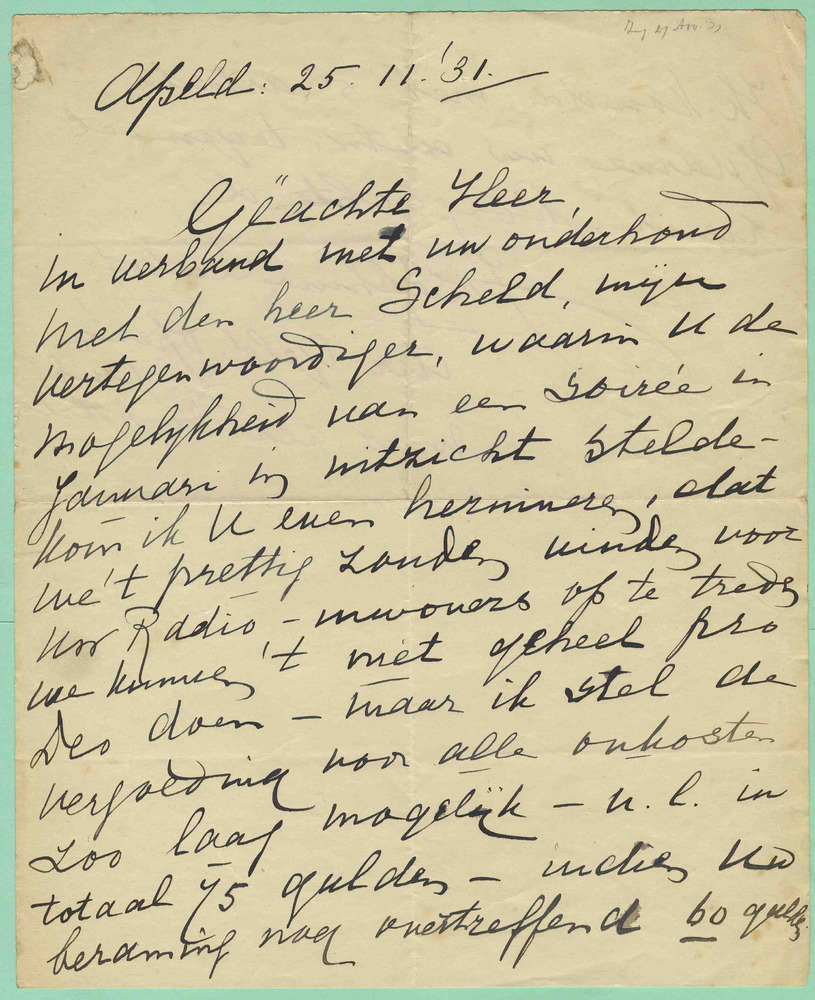 Apeld: 25. 11. '31.
Geächte Heer,
in verband met uw onderhoud
met den heer Scheld, mijn
vertegenwoordiger, waarin U de
mogelykheid van een soirée in
Januari in uitzicht stelde-
kom ik U even herinneren, dat
we 't prettig zouden vinden voor
Uw Radio-inwoners op te treden
we kunnen 't niet geheel pro
Deo doen - maar ik stel de
vergoeding voor alle onkosten
zoo laag mogelijk - n.l. in
totaal 75 gulden - indien Uw
beraming nog overtreffend 60 gulden